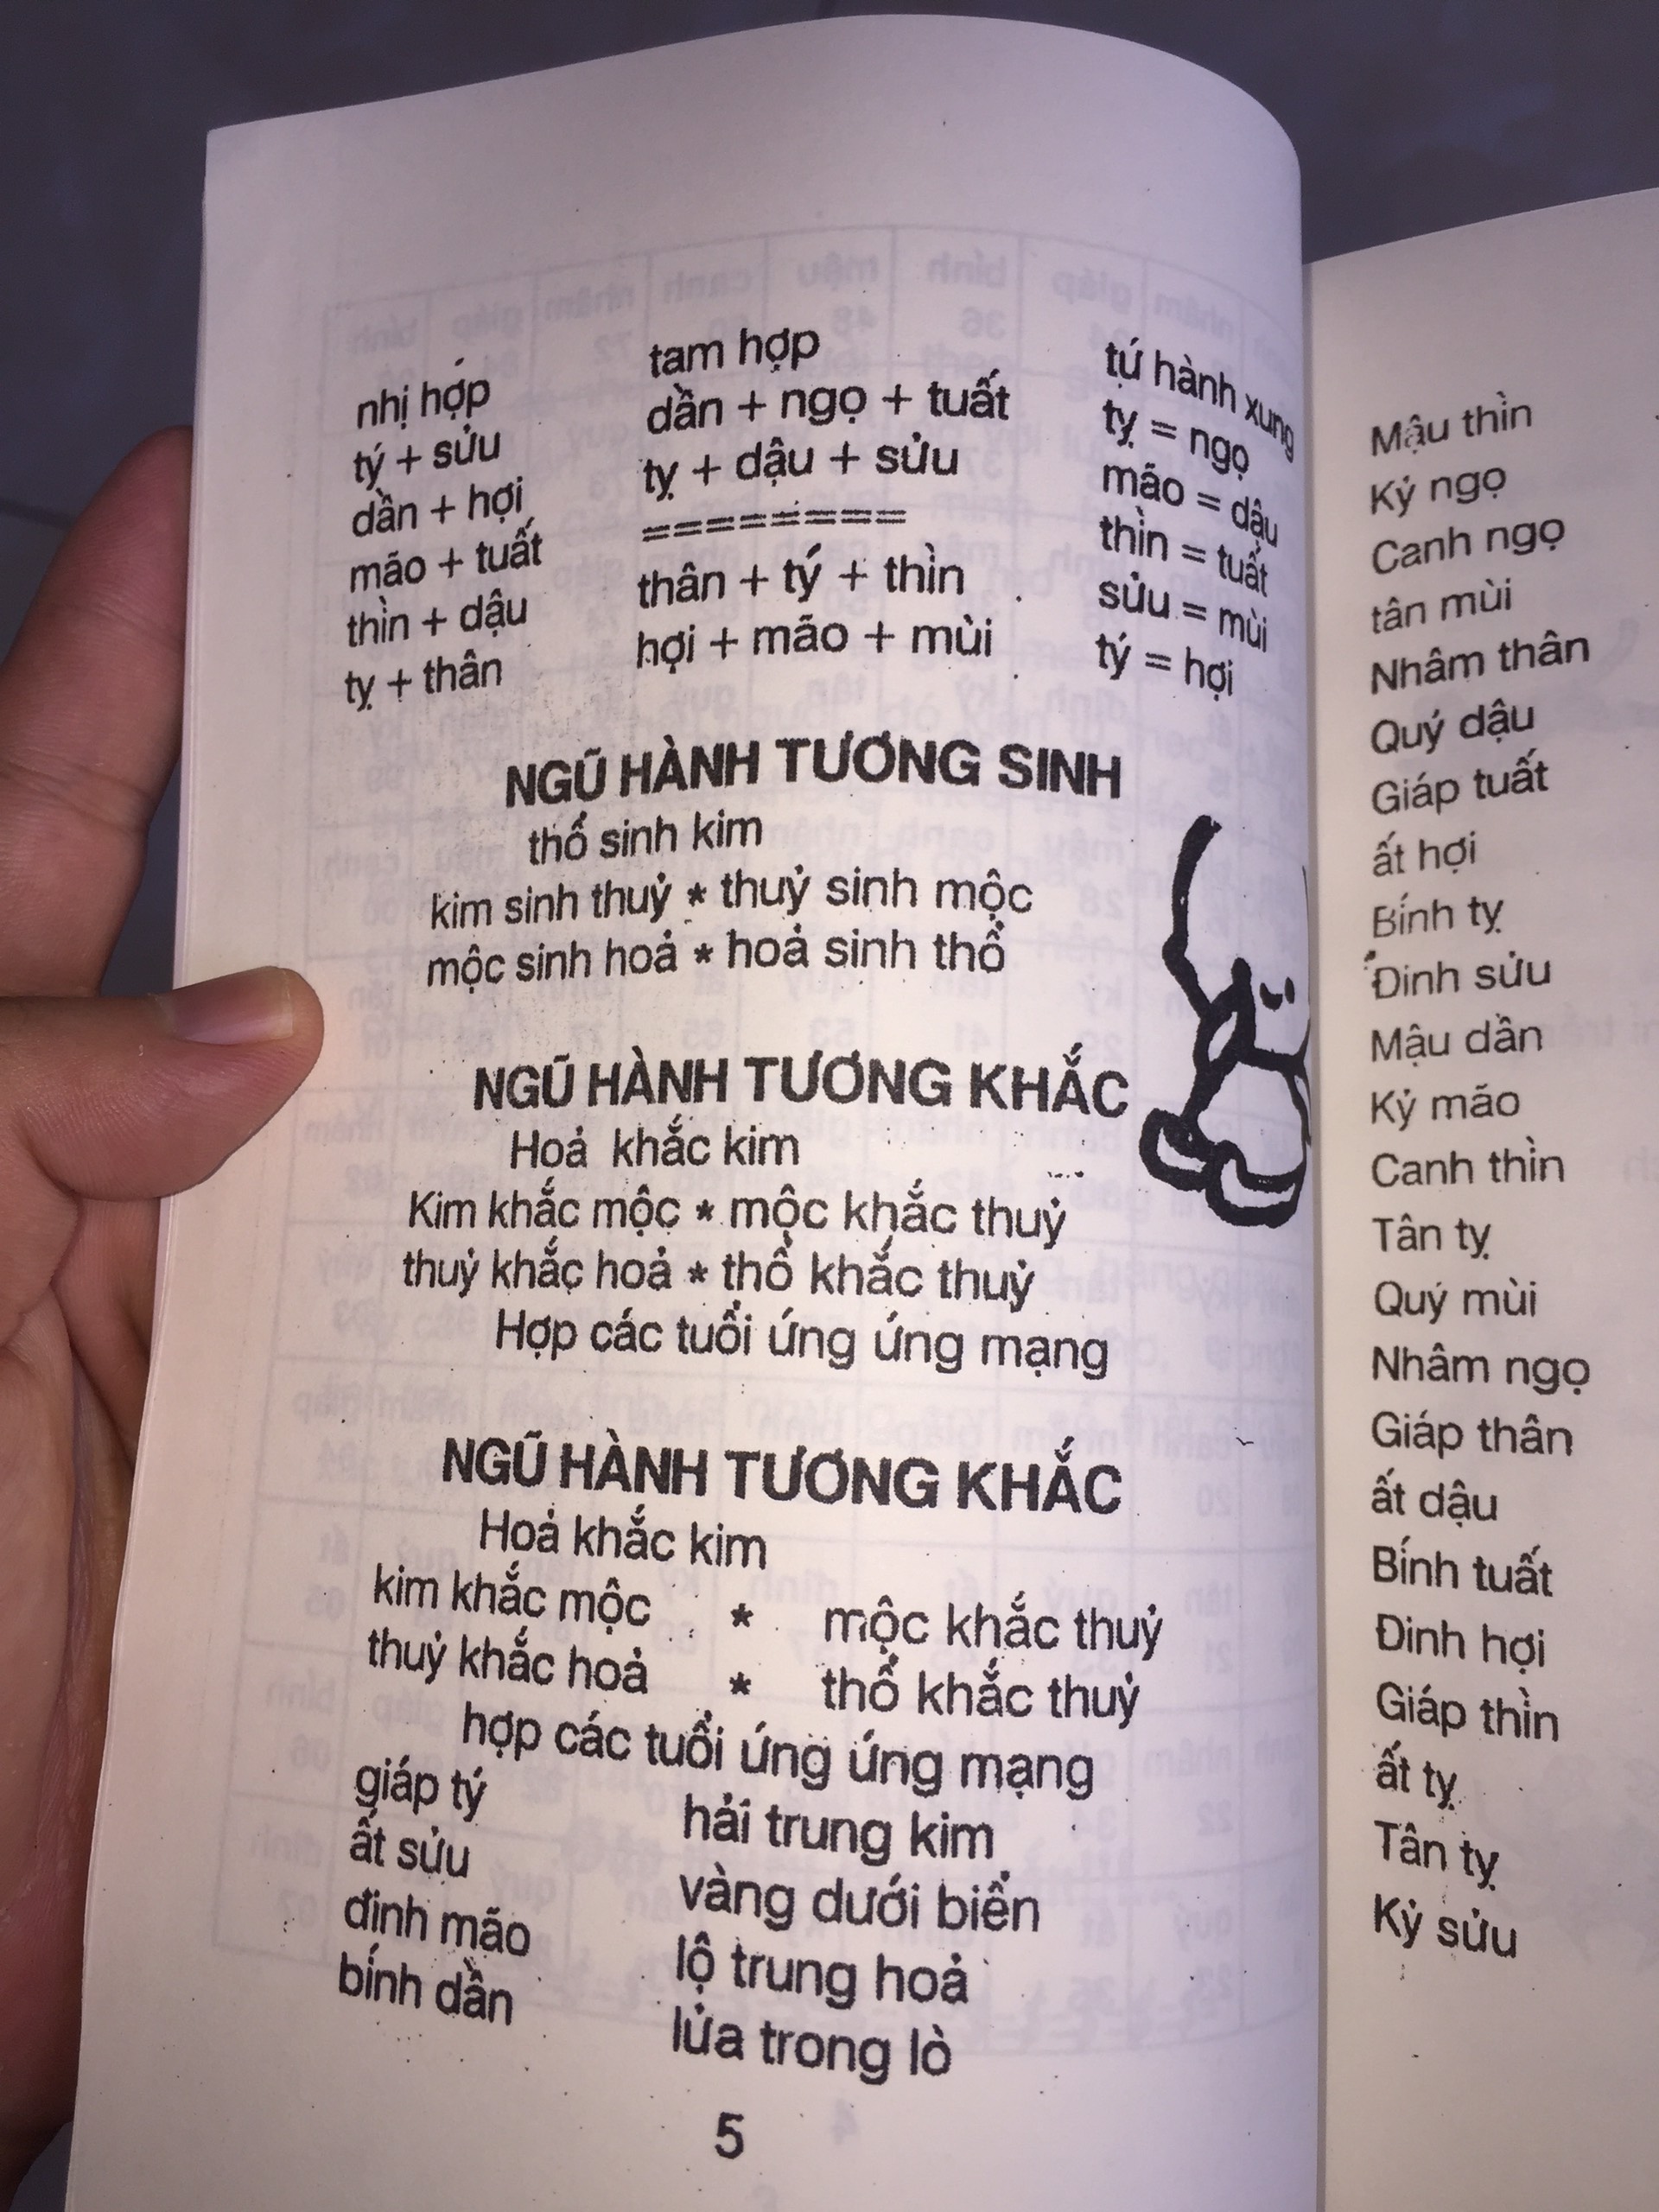 nhị hợp
tý + sửu
dần + hợi
mão + tuất
thìn + dậu
tỵ + thân
tam hợp
dần + ngọ + tuất
tỵ + dậu + sửu
========
thân + tý + thìn
hợi + mão + mùi
tứ hành xung
tỵ = ngọ
mão = dậu
thìn = tuất
sửu = mùi
tý = hợi
NGŨ HÀNH TƯƠNG SINH
thổ sinh kim
kim sinh thuỷ * thuỷ sinh mộc
mộc sinh hoả * hoả sinh thổ
NGŨ HÀNH TƯƠNG KHẮC
Hoả khắc kim
Kim khắc mộc * mộc khắc thuỷ
thuỷ khắc hoả * thổ khắc thuỷ
Hợp các tuổi ứng ứng mạng
NGŨ HÀNH TƯƠNG KHẮC
Hoả khắc kim
kim khắc mộc * mộc khắc thuỷ
thuỷ khắc hoả * thổ khắc thuỷ
hợp các tuổi ứng ứng mạng
giáp tý
ất sửu
đinh mão
bính dần
hải trung kim
vàng dưới biển
lộ trung hoả
lửa trong lò
5
Mậu thìn
Kỷ ngọ
Canh ngọ
tân mùi
Nhâm thân
Quý dậu
Giáp tuất
ất hợi
Bính tỵ
Đinh sửu
Mậu dần
Kỷ mão
Canh thìn
Tân tỵ
Quý mùi
Nhâm ngọ
Giáp thân
ất dậu
Bính tuất
Đinh hợi
Giáp thìn
ất tỵ
Tân tỵ
Kỷ sửu